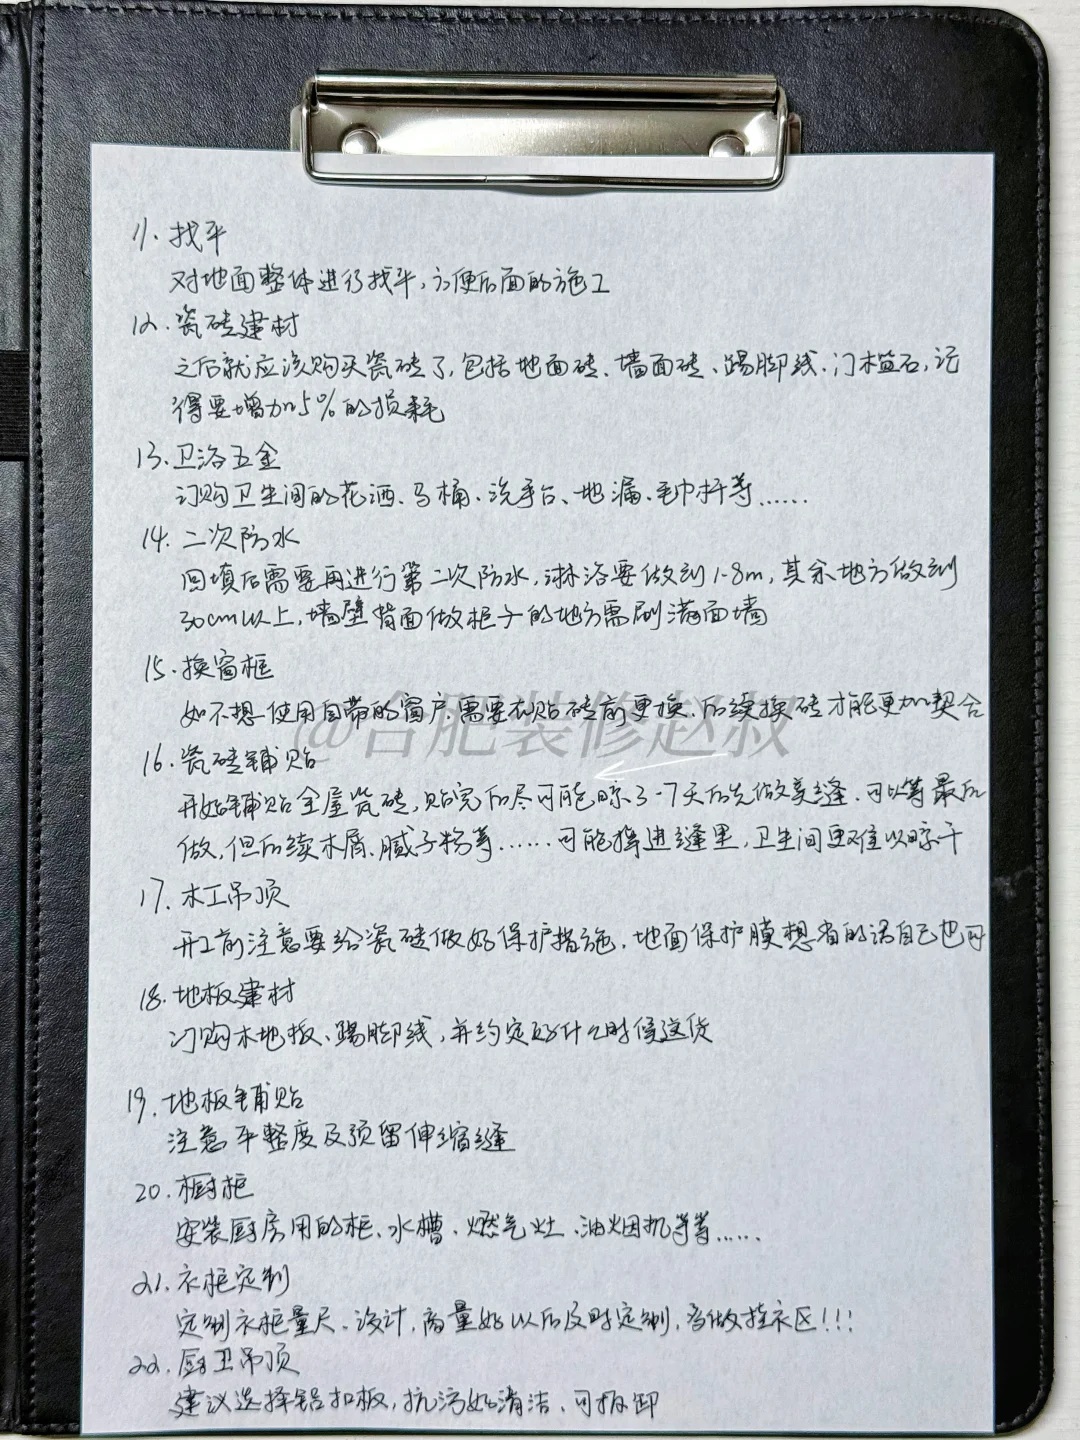 11. 找平
对地面整体进行找平,方便后面的施工
12. 瓷砖建材
之后就应该购买瓷砖了,包括地面砖、墙面砖、踢脚线、门槛石,记
得要增加5%的损耗
13. 卫浴五金
订购卫生间的花洒、马桶、洗手台、地漏、毛巾杆等......
14. 二次防水
回填后需要再进行第二次防水,淋浴要做到1.8m,其余地方做到
30cm以上,墙壁背面做柜子的地方需刷满面墙
15. 换窗框
如不想使用自带的窗户需要在贴砖前更换、后续换砖才能更加契合
@合肥装修赵叔
16. 瓷砖铺贴
开始铺贴全屋瓷砖,贴完后尽可能晾3-7天后先做美缝、可以等最后
做,但后续木屑、腻子粉等......可能掉进缝里,卫生间更难以晾干
17. 木工吊顶
开工前注意要给瓷砖做好保护措施、地面保护膜想省的话自己也可
18. 地板建材
订购木地板、踢脚线,并约定好什么时候送货
19. 地板铺贴
注意平整度及预留伸缩缝
20. 橱柜
安装厨房用的柜、水槽、燃气灶、油烟机等等......
21. 衣柜定制
定制衣柜量尺、设计,商量好以后及时定制,多做挂衣区!!!
22. 厨卫吊顶
建议选择铝扣板,抗污好清洁、可拆卸